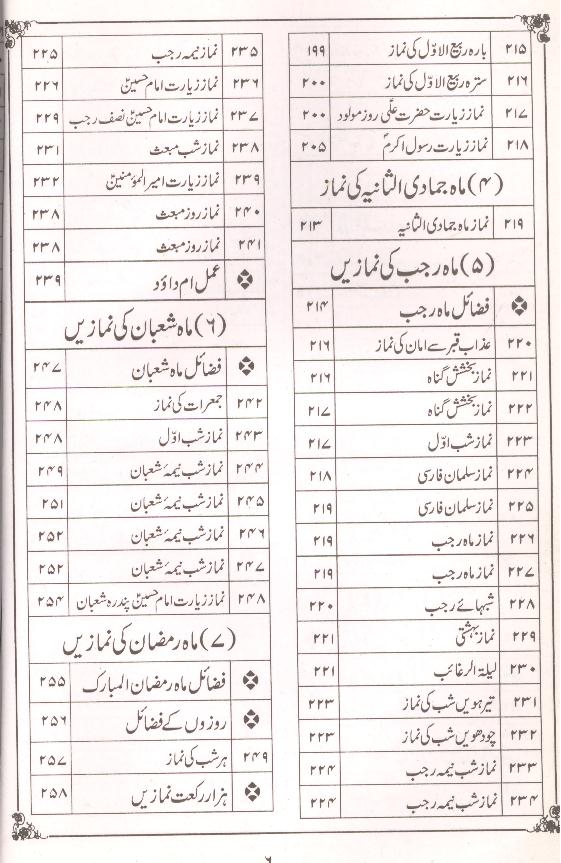 ۲۱۵ بارہ ربیع الاوّل کی نماز ۱۹۹
۲۱۶ سترہ ربیع الاوّل کی نماز ۲۰۰
۲۱۷ نماز زیارت حضرت علیؑ روز مولود ۲۰۰
۲۱۸ نماز زیارت رسول اکرمؐ ۲۰۵
(۴) ماہ جمادی الثانیہ کی نماز
۲۱۹ نماز ماہ جمادی الثانیہ ۲۱۳
(۵) ماہ رجب کی نمازیں
فضائل ماہ رجب ۲۱۴
۲۲۰ عذاب قبر سے امان کی نماز ۲۱۶
۲۲۱ نماز بخشش گناہ ۲۱۶
۲۲۲ نماز بخشش گناہ ۲۱۷
۲۲۳ نماز شب اوّل ۲۱۷
۲۲۴ نماز سلمان فارسی ۲۱۸
۲۲۵ نماز سلمان فارسی ۲۱۹
۲۲۶ نماز ماہ رجب ۲۱۹
۲۲۷ نماز ماہ رجب ۲۱۹
۲۲۸ شبہائے رجب ۲۲۰
۲۲۹ نماز بہشتی ۲۲۱
۲۳۰ لیلۃ الرغائب ۲۲۱
۲۳۱ تیرہویں شب کی نماز ۲۲۳
۲۳۲ چودھویں شب کی نماز ۲۲۳
۲۳۳ نماز شب نیمہ رجب ۲۲۴
۲۳۴ نماز شب نیمہ رجب ۲۲۴
۲۳۵ نماز نیمہ رجب ۲۲۵
۲۳۶ نماز زیارت امام حسینؑ ۲۲۶
۲۳۷ نماز زیارت امام حسینؑ نصف رجب ۲۲۹
۲۳۸ نماز شب مبعث ۲۳۱
۲۳۹ نماز زیارت امیر المؤمنینؑ ۲۳۲
۲۴۰ نماز روز مبعث ۲۳۸
۲۴۱ نماز روز مبعث ۲۳۸
عمل ام داؤد ۲۳۹
(۶) ماہ شعبان کی نمازیں
فضائل ماہ شعبان ۲۴۷
۲۴۲ جمعرات کی نماز ۲۴۸
۲۴۳ نماز شب اوّل ۲۴۸
۲۴۴ نماز شب نیمۂ شعبان ۲۴۹
۲۴۵ نماز شب نیمۂ شعبان ۲۵۱
۲۴۶ نماز شب نیمۂ شعبان ۲۵۲
۲۴۷ نماز شب نیمۂ شعبان ۲۵۲
۲۴۸ نماز زیارت امام حسینؑ پندرہ شعبان ۲۵۴
(۷) ماہ رمضان کی نمازیں
فضائل ماہ رمضان المبارک ۲۵۵
روزوں کے فضائل ۲۵۶
۲۴۹ ہر شب کی نماز ۲۵۷
ہزار رکعت نمازیں ۲۵۸